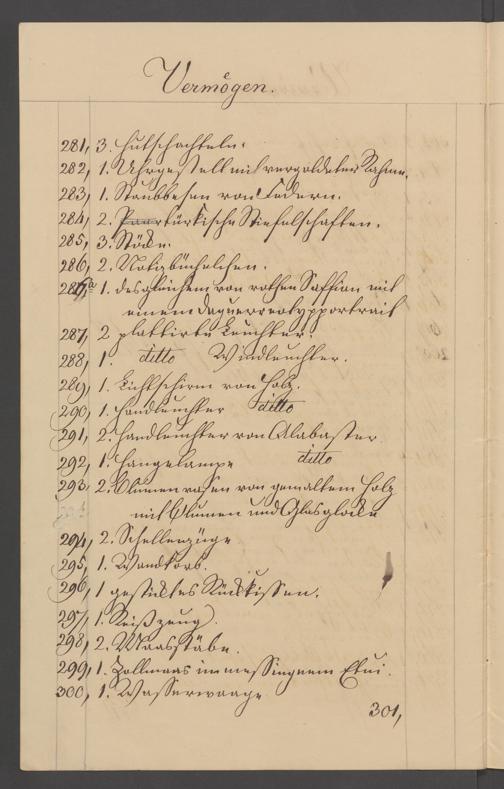 Vermögen.
281, 3. Hutschachteln.
282, 1. Uhrgestell mit vergoldeter Rahme.
283, 1. Staubbesen von Federn.
284, 2. Paar türkische Stiefelschaften.
285, 3. Stöcke.
286, 2. Notizbüchelchen.
286a 1. desgleichem von rothen Saffian mit
einem Daguerreotypportrait
287, 2 plattirte Leuchter.
288, 1. ditto Windleuchter.
289, 1. Lichtschirm von Holz.
290, 1. Handleuchter ditto
291, 2. Handleuchter von Alabaster
292, 1. Hangelampe ditto
293, 2. Blumenvasen von gemaltem Holz
mit Blumen und Glasglocke
294, 2. Schellenzüge
295, 1. Wandkorb.
296, 1 gesticktes Rückkissen.
297, 1. Reißzeug.
298, 2. Maasstäbe.
299, 1. Zollmaas im messingnem Etui.
300, 1. Wasserwaage
301,